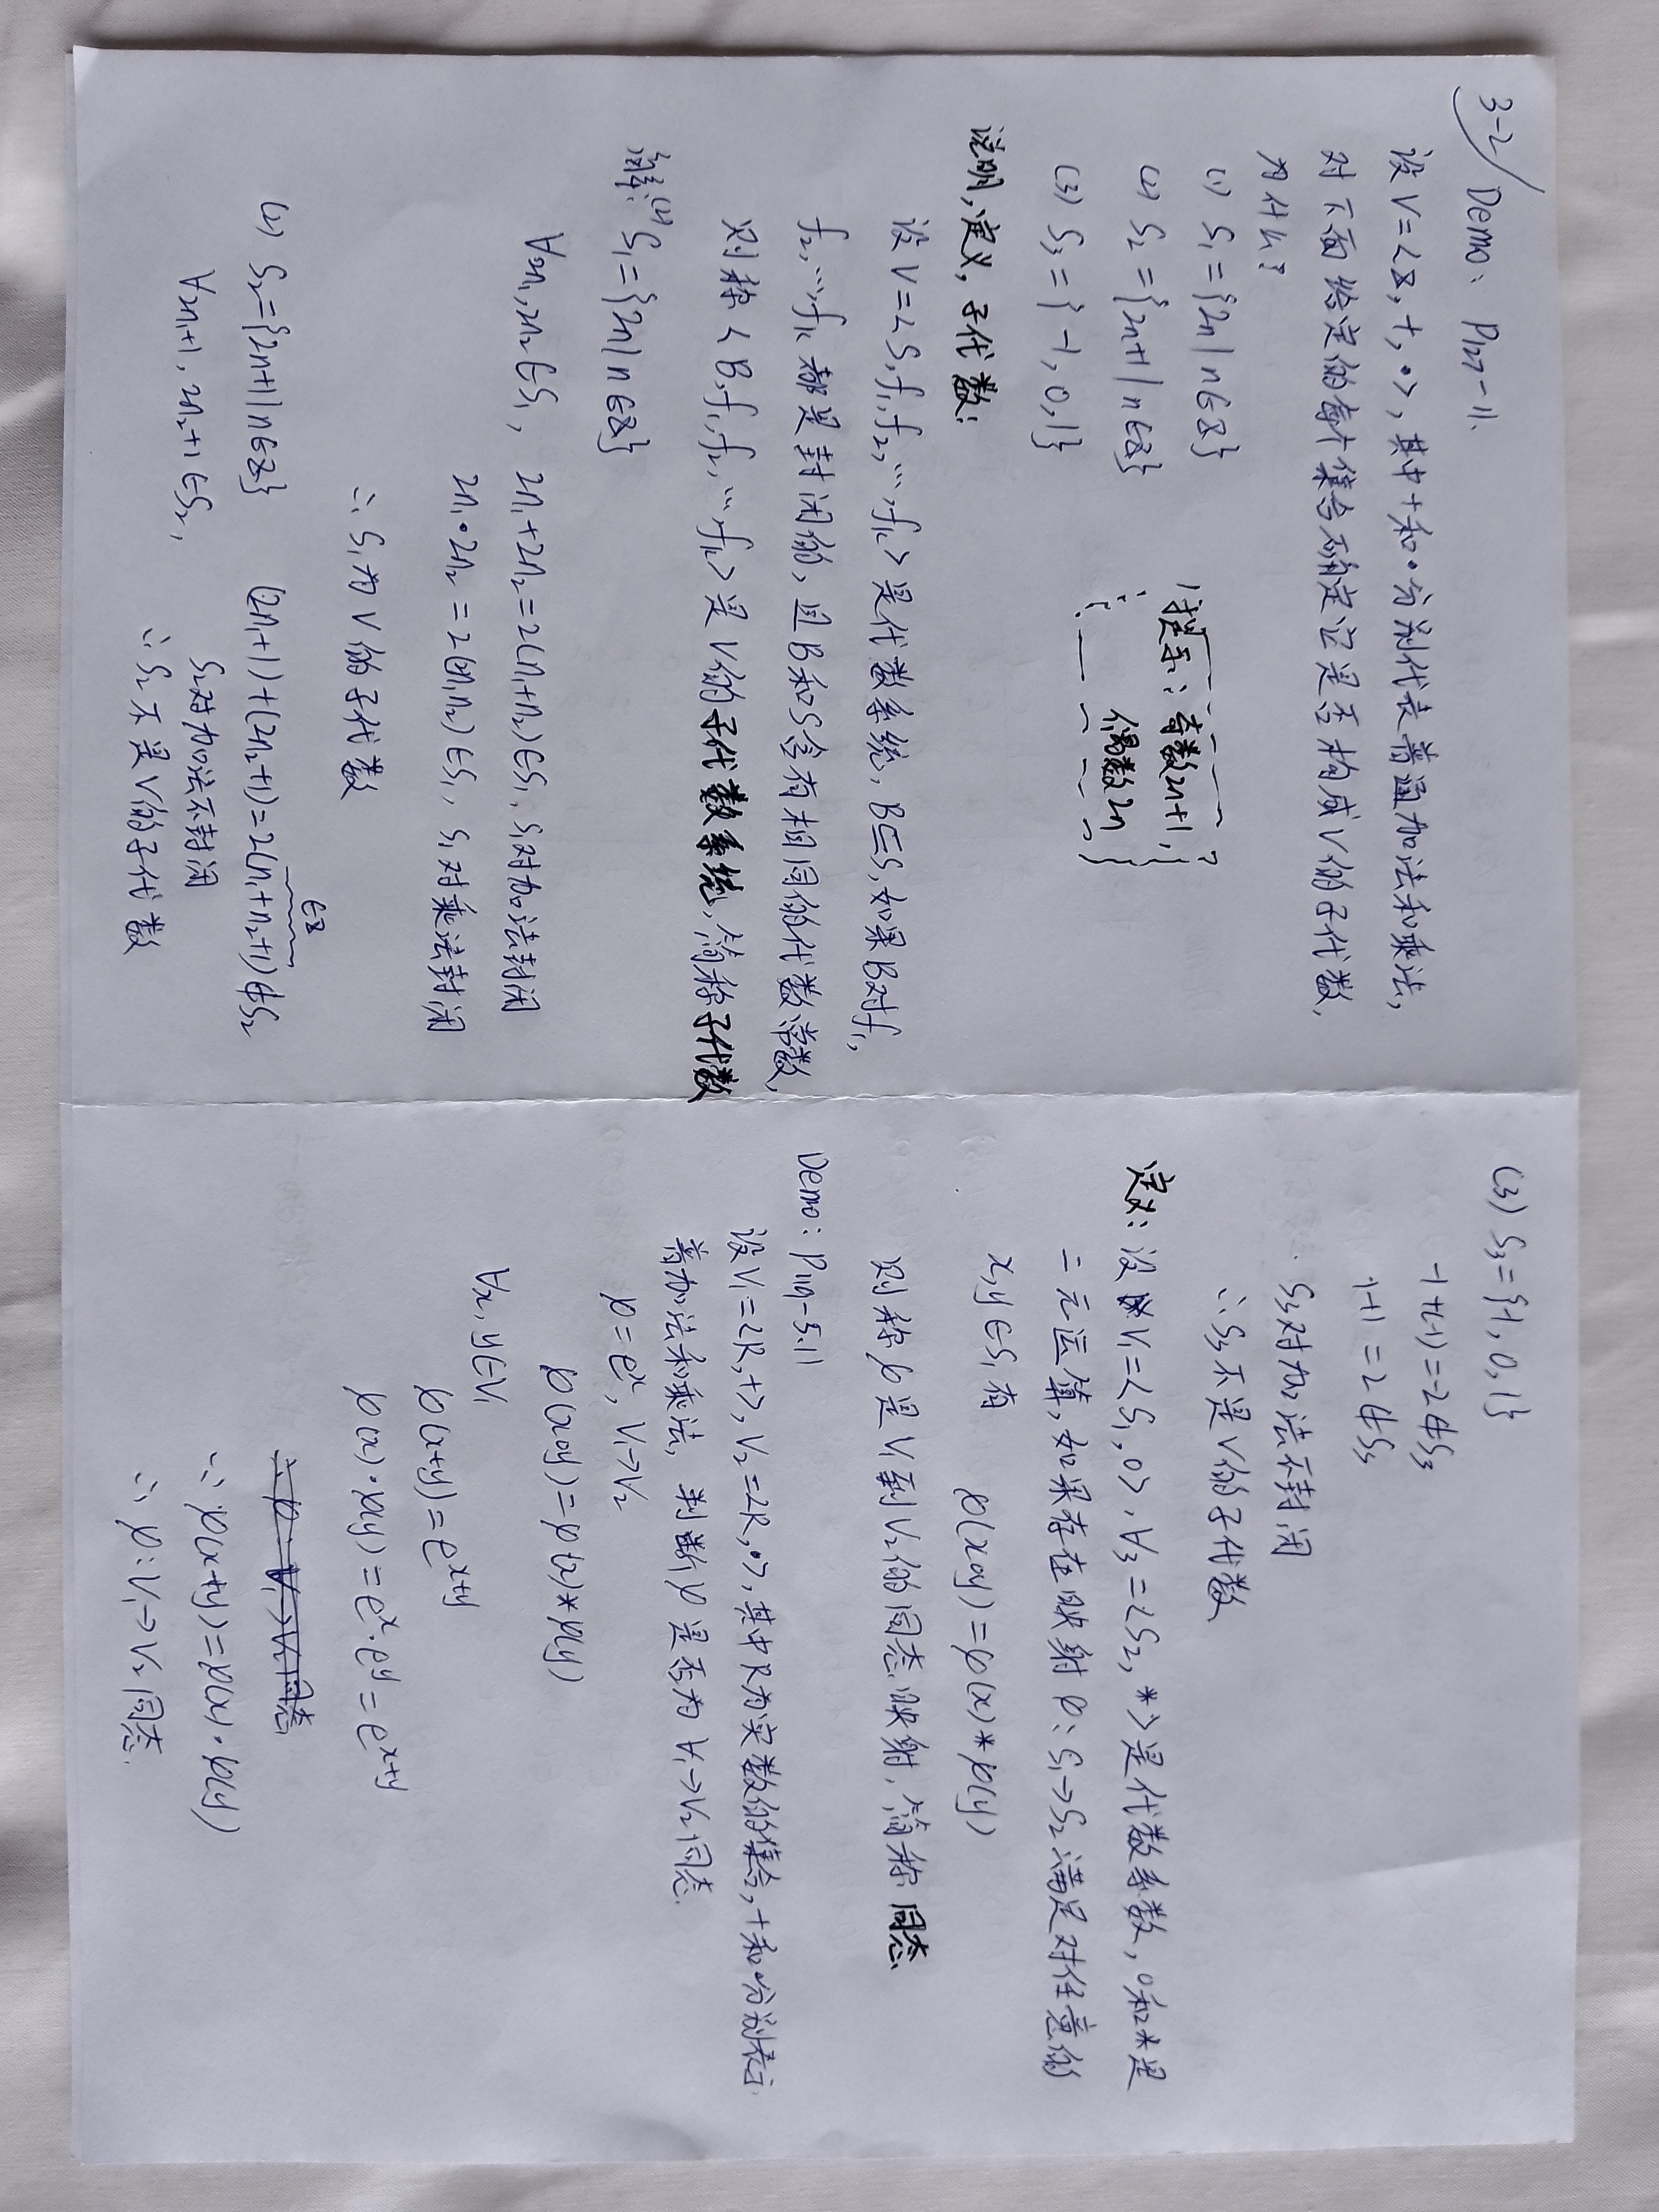 3-2/ Demo: P127-11.
设V=<Z, +, ·>, 其中+和·分别代表普通加法和乘法,
对下面给定的每个集合确定它是否构成V的子代数,
为什么?
(1) S₁={2n|n∈Z}
(2) S₂={2n+1|n∈Z}
(3) S₃={-1, 0, 1}
提示: 奇数2n+1,
偶数2n
说明, 定义, 子代数:
设V=<S, f₁, f₂, …, fₖ>是代数系统, B⊆S, 如果B对f₁,
f₂, …, fₖ都是封闭的, 且B和S含有相同的代数常数,
则称<B, f₁, f₂, …, fₖ>是V的子代数系统, 简称子代数
解: (2) S₁={2n|n∈Z}
∀2n₁, 2n₂∈S₁, 2n₁+2n₂=2(n₁+n₂)∈S₁, S₁对加法封闭
2n₁·2n₂=2(2n₁n₂)∈S₁, S₁对乘法封闭
∴S₁为V的子代数
∈Z
(2) S₂={2n+1|n∈Z} (2n₁+1)+(2n₂+1)=2(n₁+n₂+1)∉S₂
∀2n₁+1, 2n₂+1∈S₂, S₂对加法不封闭
∴S₂不是V的子代数
(3) S₃={-1, 0, 1}
-1+(-1)=-2∉S₃
1+1=2∉S₃
S₃对加法不封闭
∴S₃不是V的子代数
定义: 设V₁=<S₁, o>, V₃=<S₂, *>是代数系数, o和*是
二元运算, 如果存在映射φ: S₁→S₂满足对任意的
x, y∈S₁有 φ(xoy)=φ(x)*φ(y)
则称φ是V₁到V₂的同态映射, 简称同态
Demo: P119-5.11
设V₁=<R, +>, V₂=<R, ·>, 其中R为实数的集合, +和·分别表示
普加法和乘法, 判断φ是否为V₁→V₂同态.
φ=eˣ, V₁→V₂
φ(xoy)=φ(x)*φ(y)
∀x, y∈V₁
φ(x+y)=eˣ⁺ʸ
φ(x)·φ(y)=eˣ·eʸ=eˣ⁺ʸ
∴φ: V₁→V₂同态
∵φ(x+y)=φ(x)·φ(y)
∴φ: V₁→V₂同态.